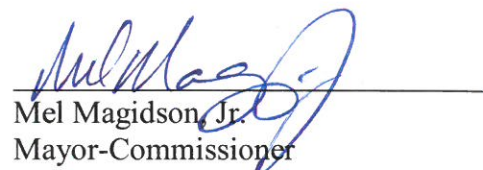 Mel Magidson, Jr.
Mayor-Commissioner